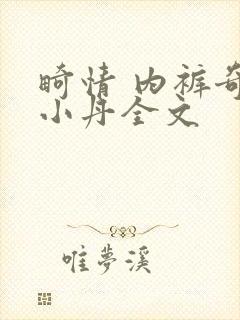 畸情 内裤奇
小丹全文
唯夢溪